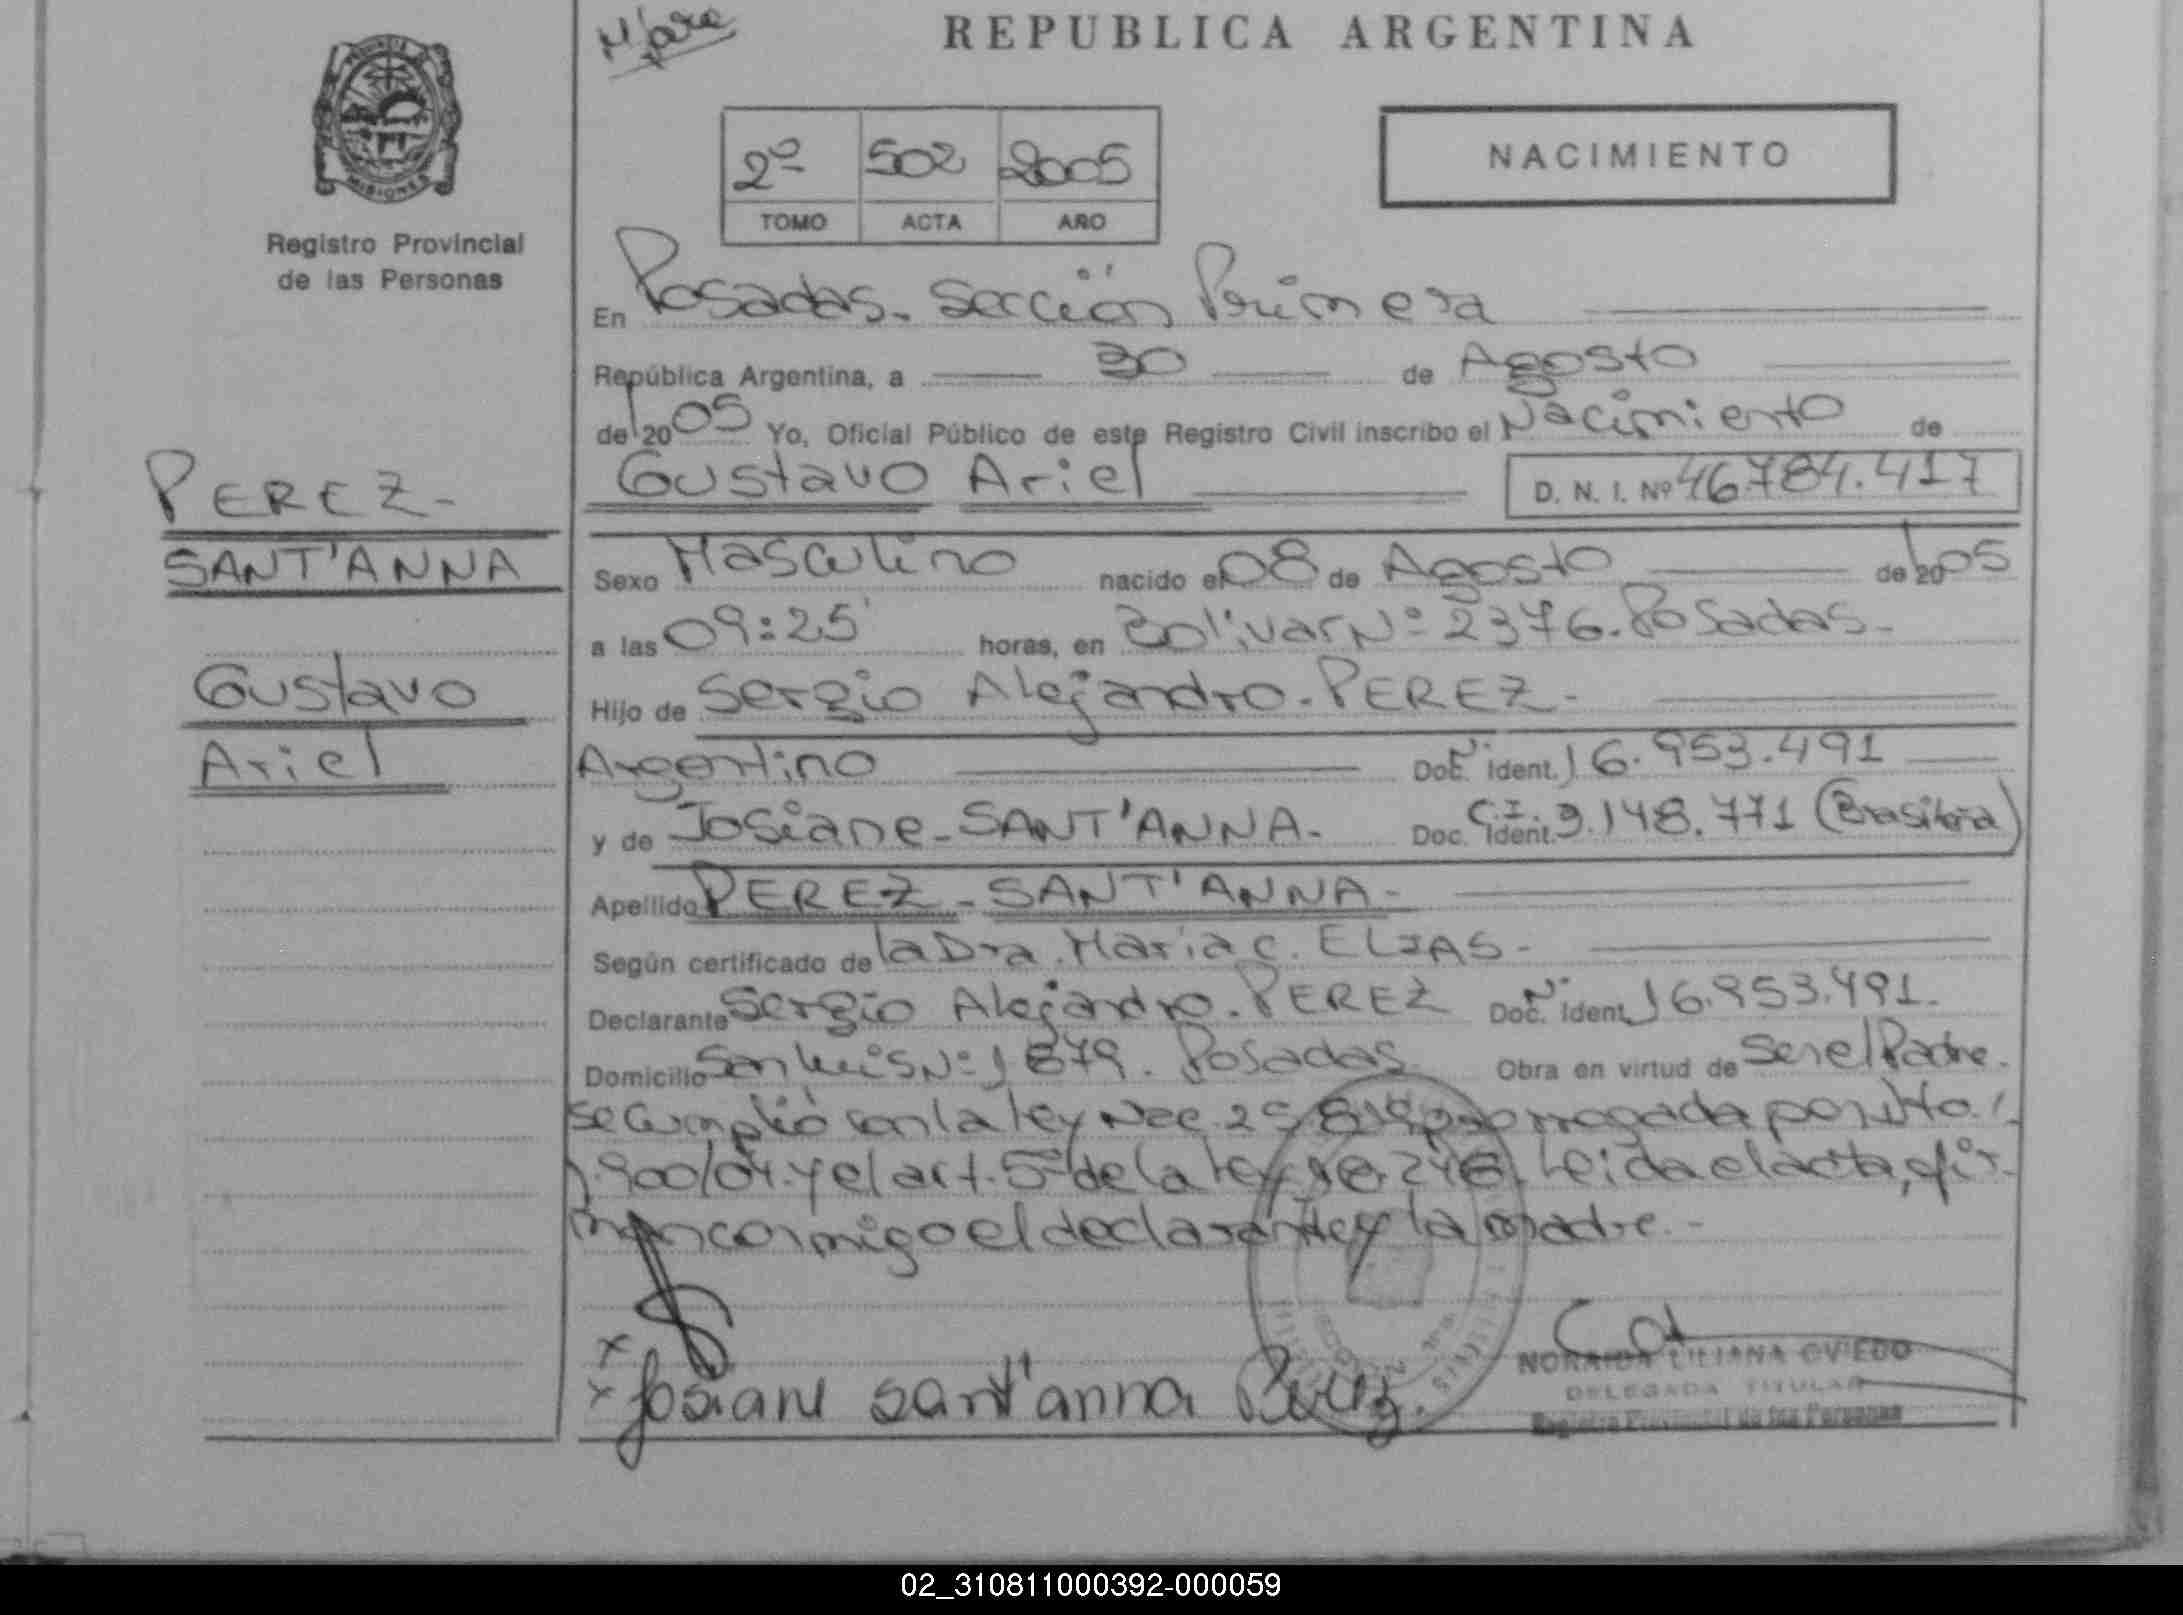 REPUBLICA ARGENTINA
PROVINCIA DE MISIONES
Registro Provincial
de las Personas
2º 502 2005
TOMO ACTA AÑO
NACIMIENTO
En Posadas. Sección Primera
República Argentina, a 30 de Agosto
de 2005 Yo, Oficial Público de este Registro Civil inscribo el Nacimiento de
Gustavo Ariel D. N. I. Nº 46.784.417
PEREZ-
SANT'ANNA
Gustavo
Ariel
Sexo Masculino nacido el 08 de Agosto de 2005
a las 09:25' horas, en Bolivar Nº 2376. Posadas.-
Hijo de Sergio Alejandro. PEREZ-
Argentino Doc. ident. 16.953.491
y de Josiane-SANT'ANNA- Doc. ident. C.I. 9.148.771 (Brasileña)
Apellido PEREZ-SANT'ANNA-
Según certificado de la Dra. Maria C. ELIAS-
Declarante Sergio Alejandro. PEREZ Doc. ident. 16.953.491.
Domicilio San Luis Nº 1879. Posadas Obra en virtud de ser el Padre.
se cumplió con la ley Nac. 25.819 prorrogada por Dto.
1.900/04. y el art. 5º de la ley 18.248. Leida el acta, fir-
man conmigo el declarante y la madre.-
x
x Josiane sant'anna Perez.
NORAIDA LILIANA OVIEDO
DELEGADA TITULAR
Registro Provincial de las Personas
02_310811000392-000059